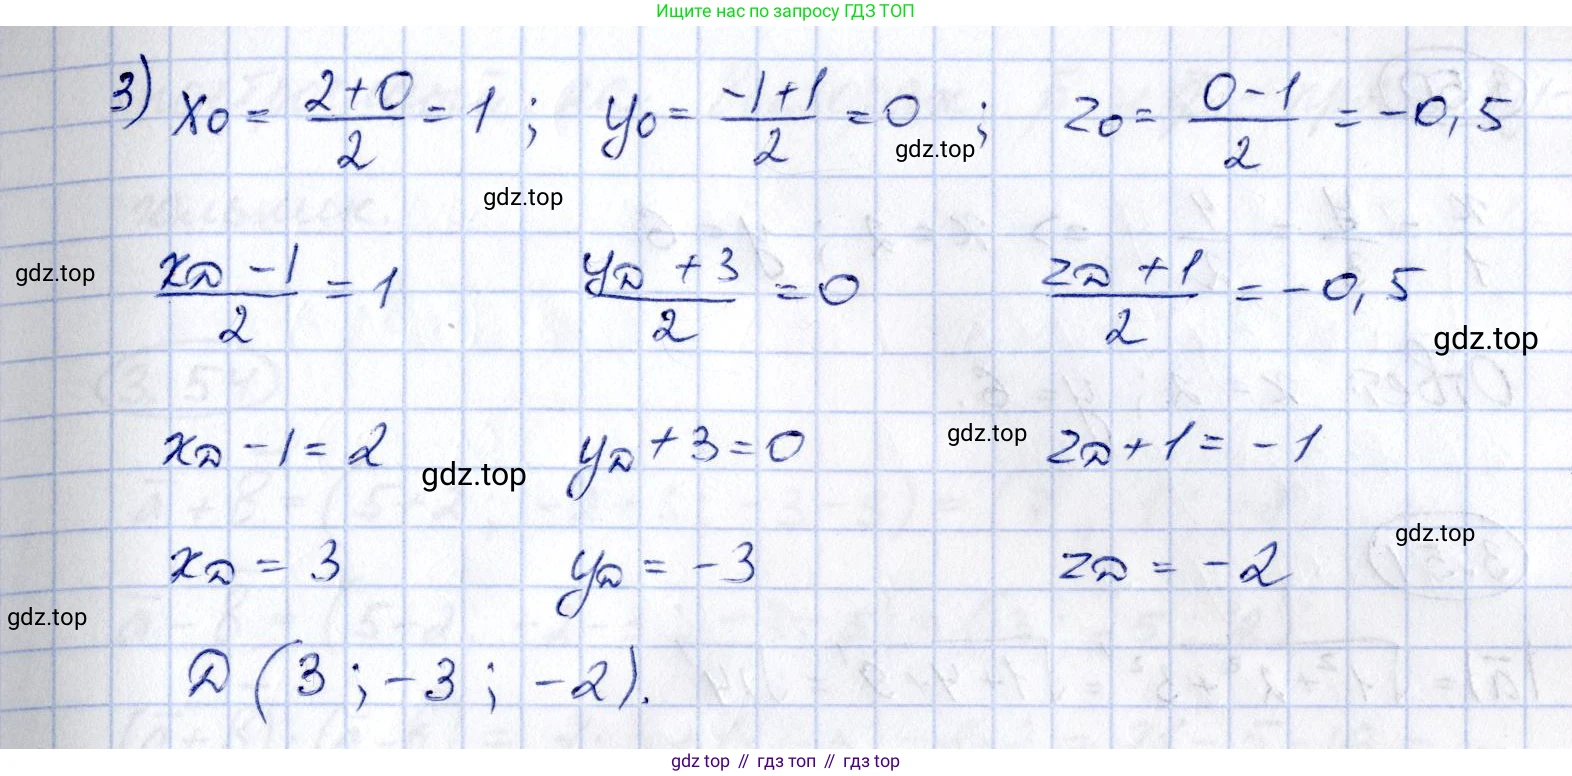 Ищите нас по запросу ГДЗ ТОП
3) x₀ = (2+0)/2 = 1 ; y₀ = (-1+1)/2 = 0 ; z₀ = (0-1)/2 = -0,5
gdz.top
gdz.top
gdz.top
(xД -1)/2 = 1 (yД +3)/2 = 0 (zД +1)/2 = -0,5
gdz.top
xД -1 = 2 yД +3 = 0 zД +1 = -1
gdz.top
gdz.top
xД = 3 yД = -3 zД = -2
gdz.top
gdz.top
Д (3 ; -3 ; -2).
gdz top // гдз топ // гдз top